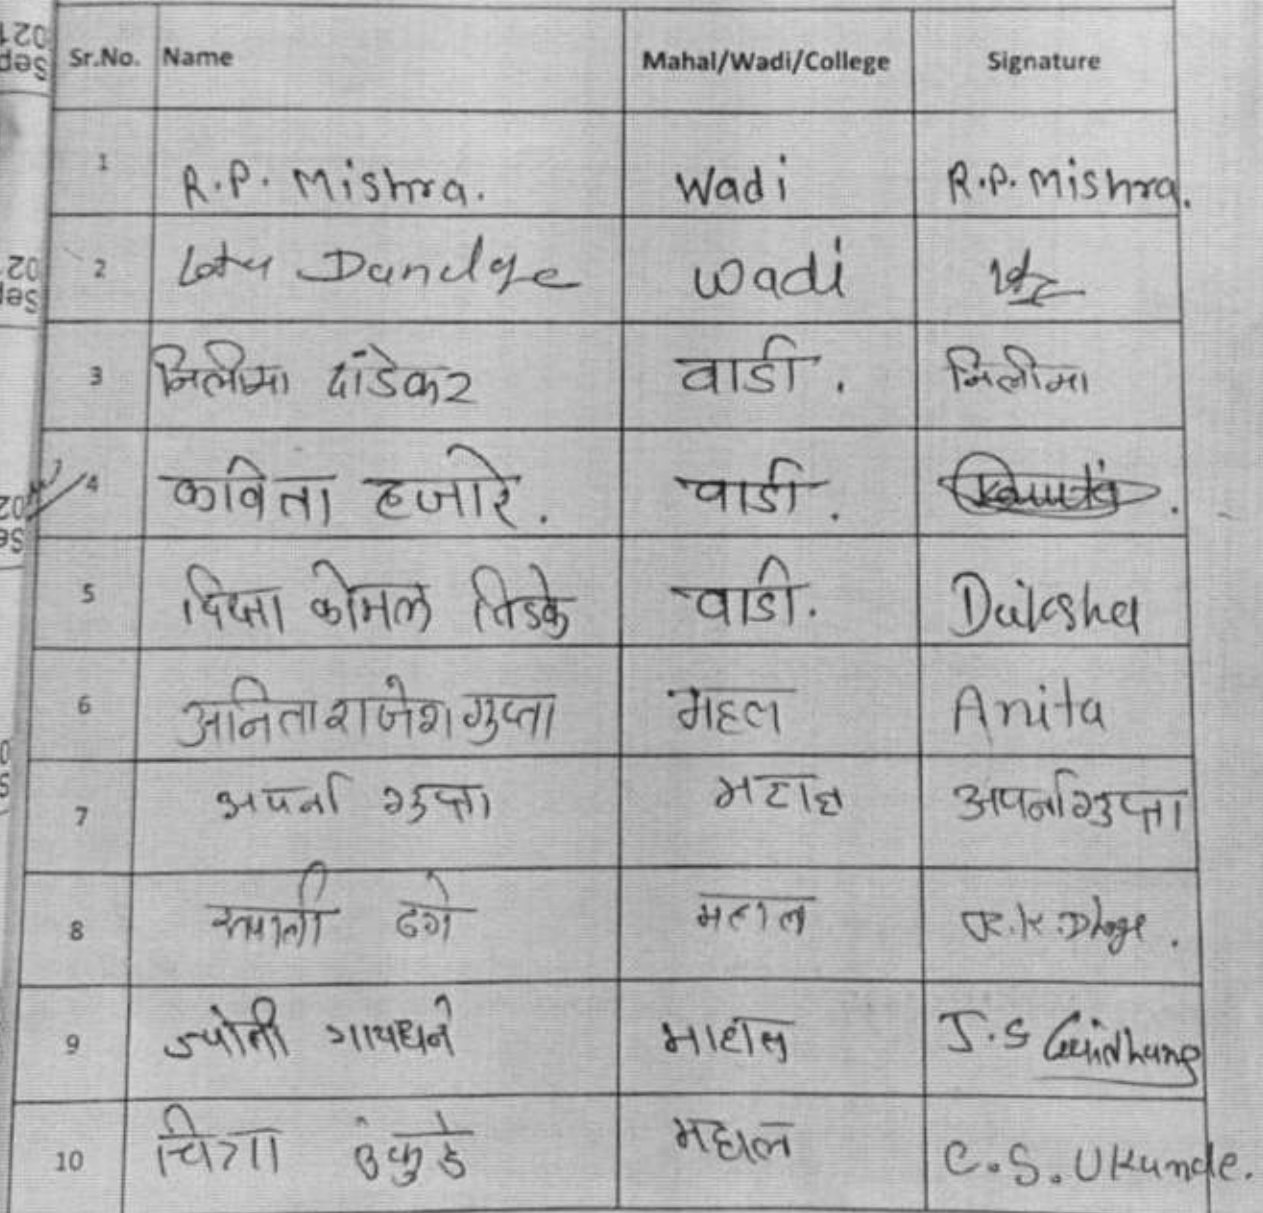 Sr.No. Name Mahal/Wadi/College Signature
1 R.P. Mishra. Wadi R.P. Mishra.
2 Dandge Wadi
3 निलीमा दांडेकर वाडी. निलीमा
4 कविता हजारे. वाडी. Kavita.
5 दिक्षा कोमल तिडके वाडी. Diksha
6 अनिता राजेश गुप्ता महल Anita
7 अपर्णा गुप्ता अपर्णा गुप्ता
8 रुपाली ढगे महाल R.K. Dhage.
9 ज्योती गायधने माहाल J.S
10 चित्रा उंकुडे महाल C.S. Ukunde.